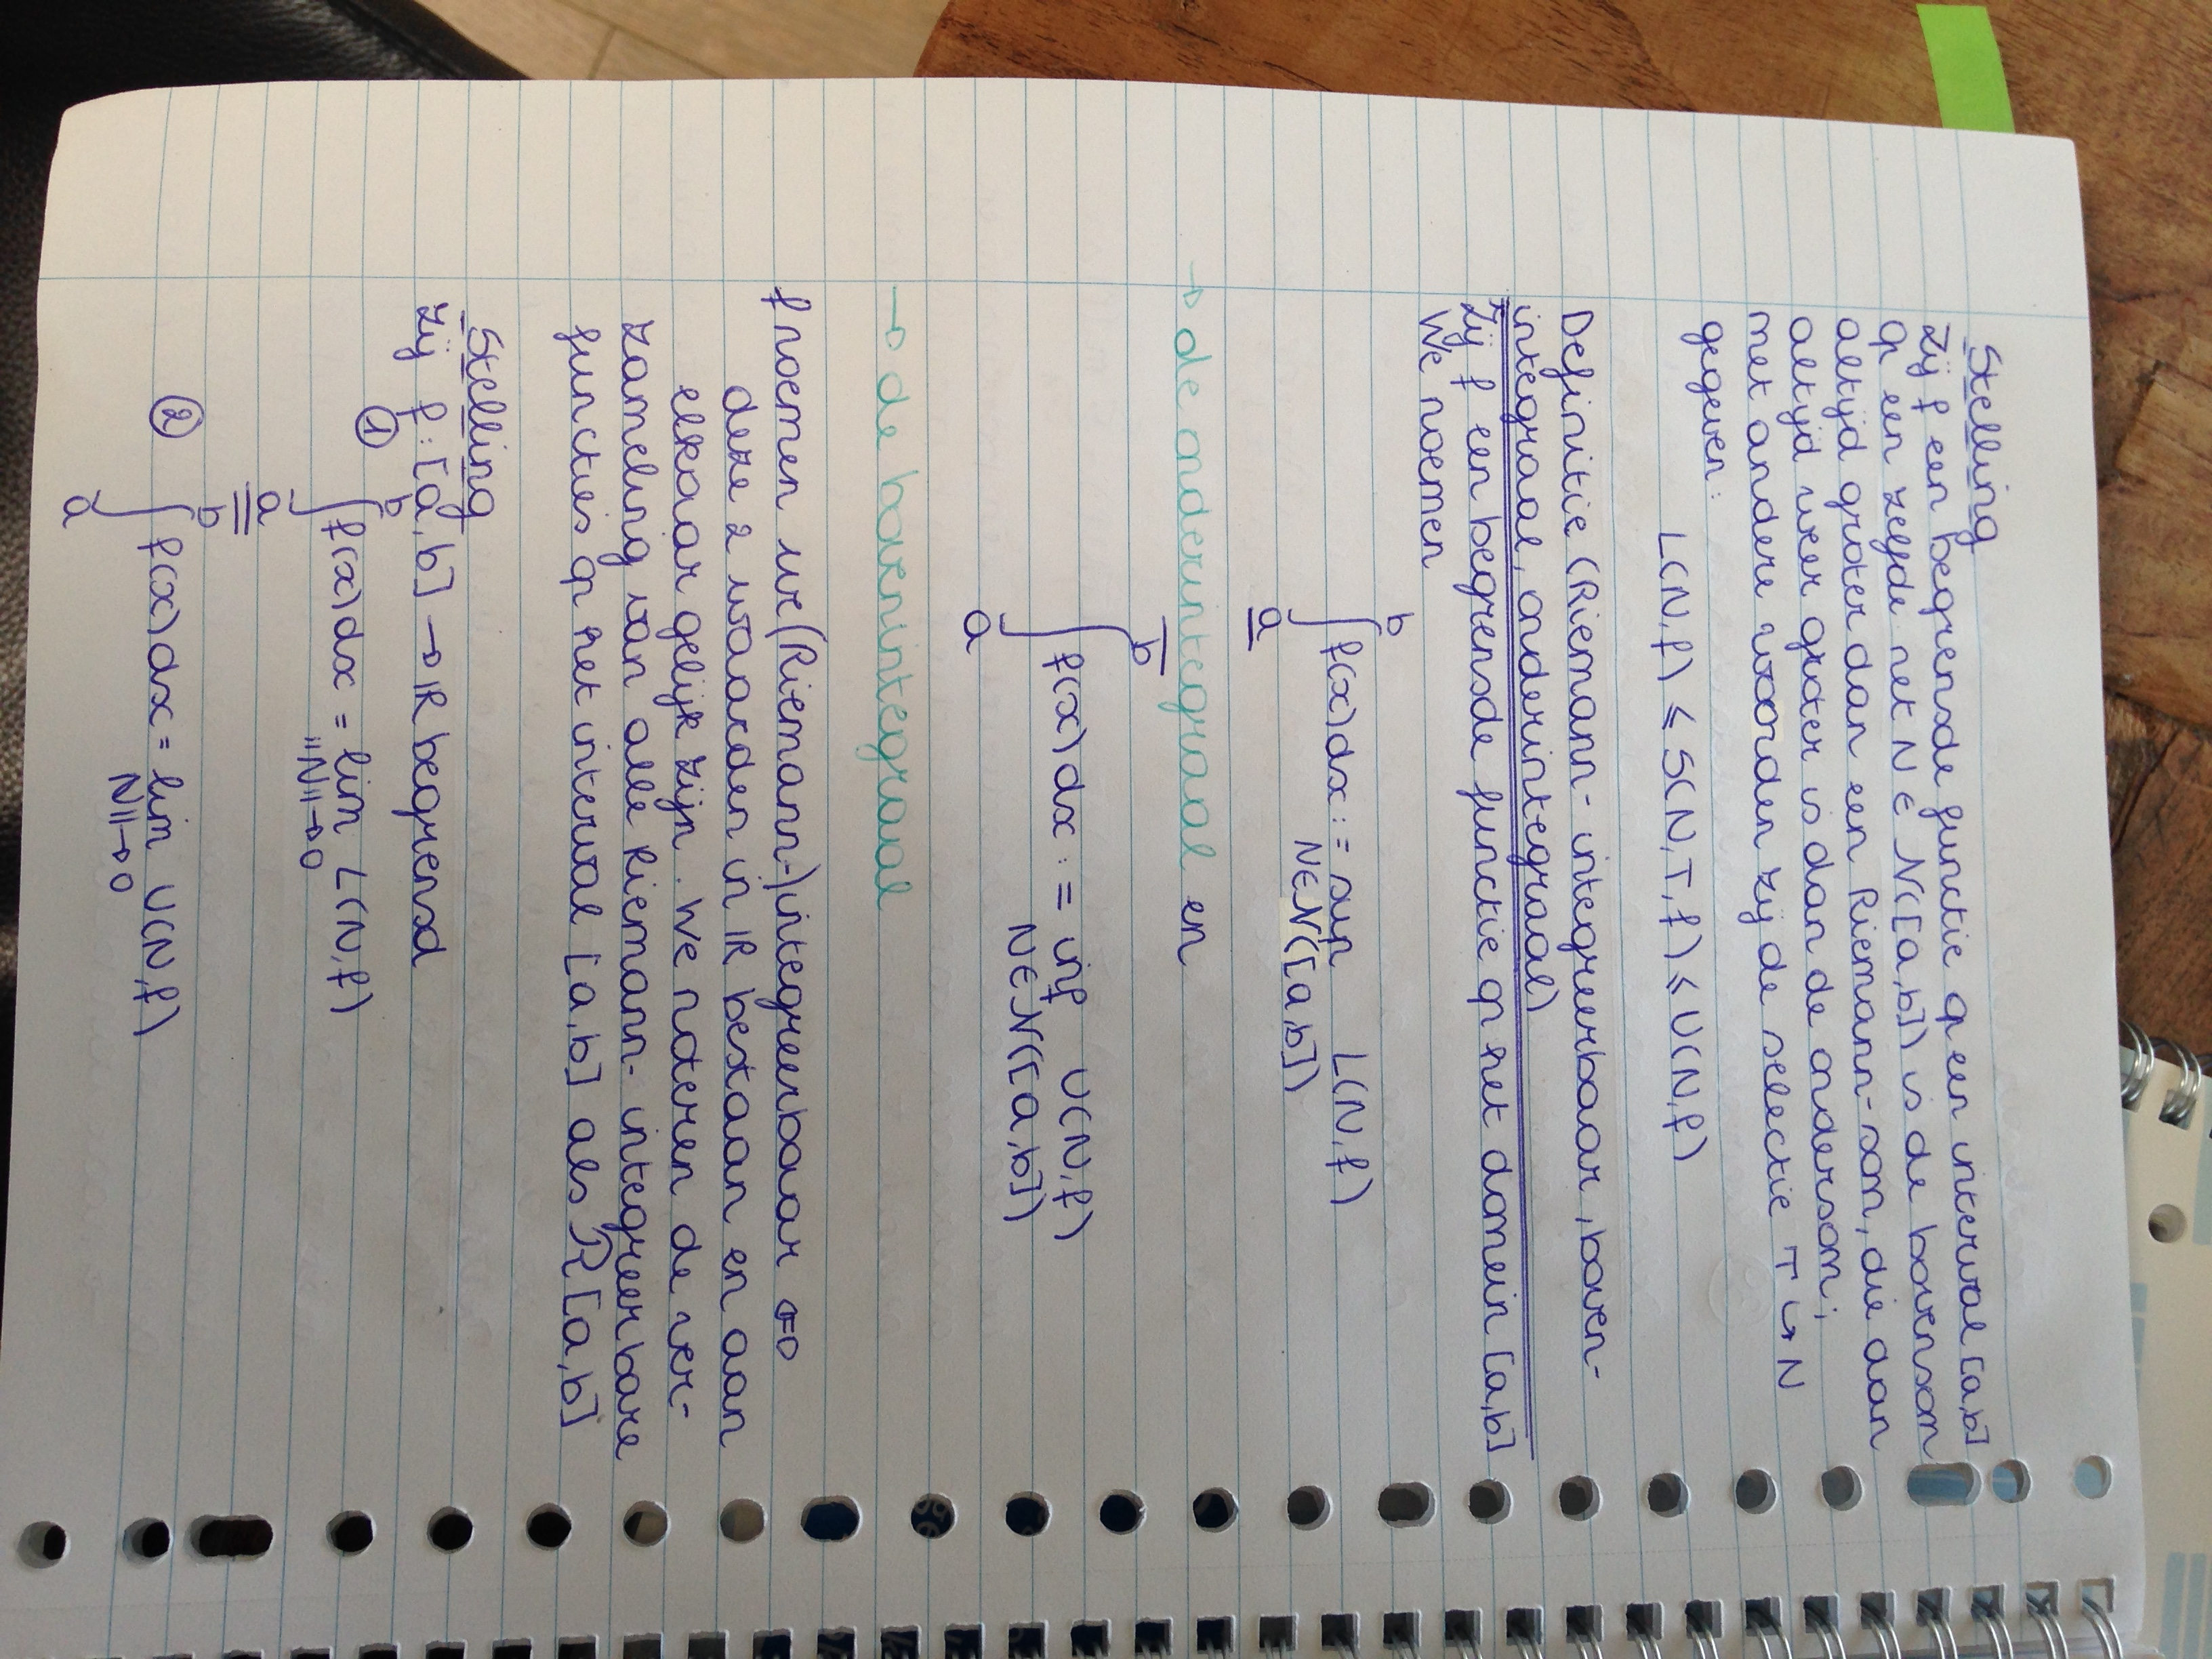 Stelling
Zij f een begrensde functie op een interval [a,b]
Op een zelfde net N ∈ 𝒩([a,b]) is de bovensom
altijd groter dan een Riemann-som, die dan
altijd weer groter is dan de ondersom;
met andere woorden zij de selectie T ↪ N
gegeven:
L(N,f) ⩽ S(N,T,f) ⩽ U(N,f)
Definitie (Riemann- integreerbaar, boven-
integraal, onderintegraal)
Zij f een begrensde functie op het domein [a,b]
We noemen
b
∫ f(x)dx := sup L(N,f)
N∈𝒩([a,b])
a
→ de onderintegraal en
b
∫ f(x)dx := inf U(N,f)
N∈𝒩([a,b])
a
→ de bovenintegraal
f noemen we (Riemann-)integreerbaar ⇔
deze 2 waarden in ℝ bestaan en aan
elkaar gelijk zijn. We noteren de ver-
zameling van alle Riemann- integreerbare
functies op het interval [a,b] als ℛ[a,b]
Stelling
Zij f: [a,b] → ℝ begrensd
b
① ∫ f(x)dx = lim L(N,f)
||N||→0
a
b
② ∫ f(x)dx = lim U(N,f)
N||→0
a